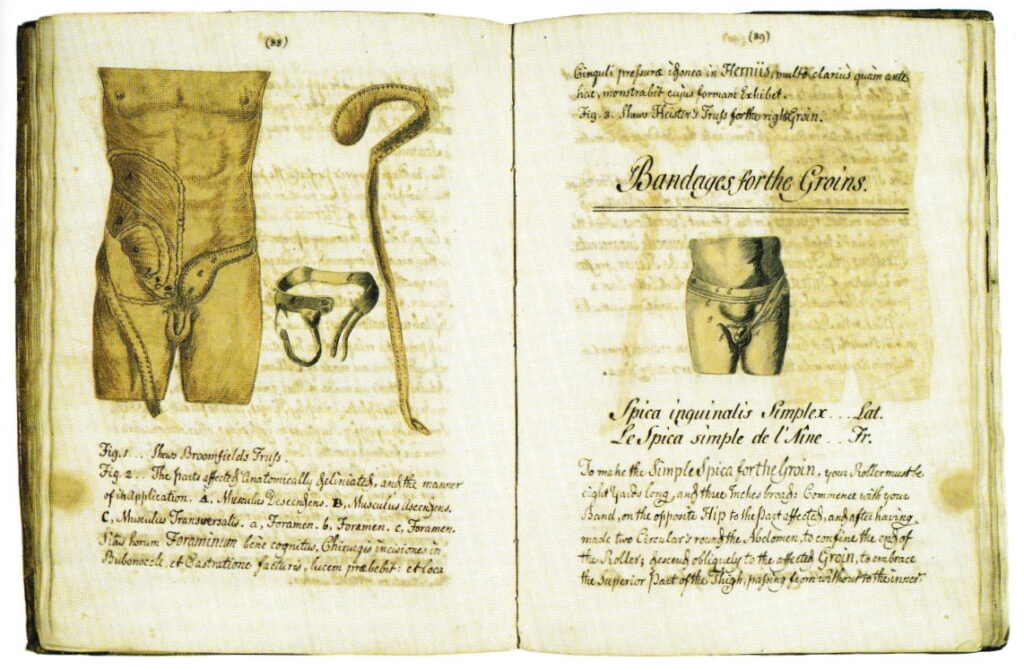 (88)
Fig. 1 ... Shews Broomfields Truss.
Fig. 2 ... The parts affected Anatomically deliniated, and the manner
of its Application. A, Musculus Descendens. B, Musculus Ascendens.
C, Musculus Transversalis. a, Foramen. b, Foramen. c, Foramen.
Situs horum Foraminum bene cognitus, Chirurgis incisiones in
Bubonoceli, et Castratione facturis, lucem præbebit: et loca
(89)
Cinguli pressuræ idonea in Herniis, multo clarius quam ante
hac, monstrabit cujus formam Exhibet.
Fig. 3. Shews Heister's Truss for the right Groin.
Bandages for the Groins.
Spica inguinalis Simplex ... Lat.
Le Spica simple de l'Aine ... Fr.
To make the Simple Spica for the Groin, your Roller must be
eight Yards long, and three Inches broad: Commence with your
Band, on the opposite Hip to the Part affected, and after having
made two Circular's round the Abdomen, to confine the end of
the Roller; descend obliquely to the affected Groin, to embrace
the Superior Part of the Thigh, passing from without to the inner